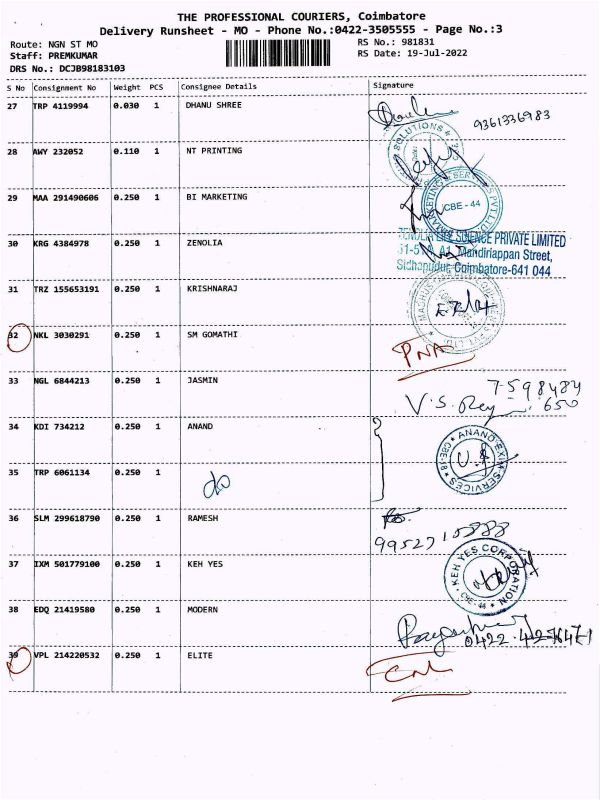 THE PROFESSIONAL COURIERS, Coimbatore
Delivery Runsheet - MO - Phone No.:0422-3505555 - Page No.:3
Route: NGN ST MO
RS No.: 981831
Staff: PREMKUMAR
RS Date: 19-Jul-2022
DRS No.: DCJB98183103
S No Consignment No Weight PCS Consignee Details Signature
27 TRP 4119994 0.030 1 DHANU SHREE
9361336983
28 AWY 232052 0.110 1 NT PRINTING
SOLUTIONS
29 MAA 291490606 0.250 1 BI MARKETING
CBE - 44
30 KRG 4384978 0.250 1 ZENOLIA
ZENOLIA LIFE SCIENCE PRIVATE LIMITED
A1, Mandiriappan Street,
Sidhapudur, Coimbatore-641 044
31 TRZ 155653191 0.250 1 KRISHNARAJ
32 NKL 3030291 0.250 1 SM GOMATHI
PNA
33 NGL 6844213 0.250 1 JASMIN
7598484
650
V.S.
34 KDI 734212 0.250 1 ANAND
ANAND EXIM SERVICES
35 TRP 6061134 0.250 1
do
36 SLM 299618790 0.250 1 RAMESH
37 IXM 501779100 0.250 1 KEH YES
KEH YES CORPORATION
CBE-44
38 EDQ 21419580 0.250 1 MODERN
39 VPL 214220532 0.250 1 ELITE